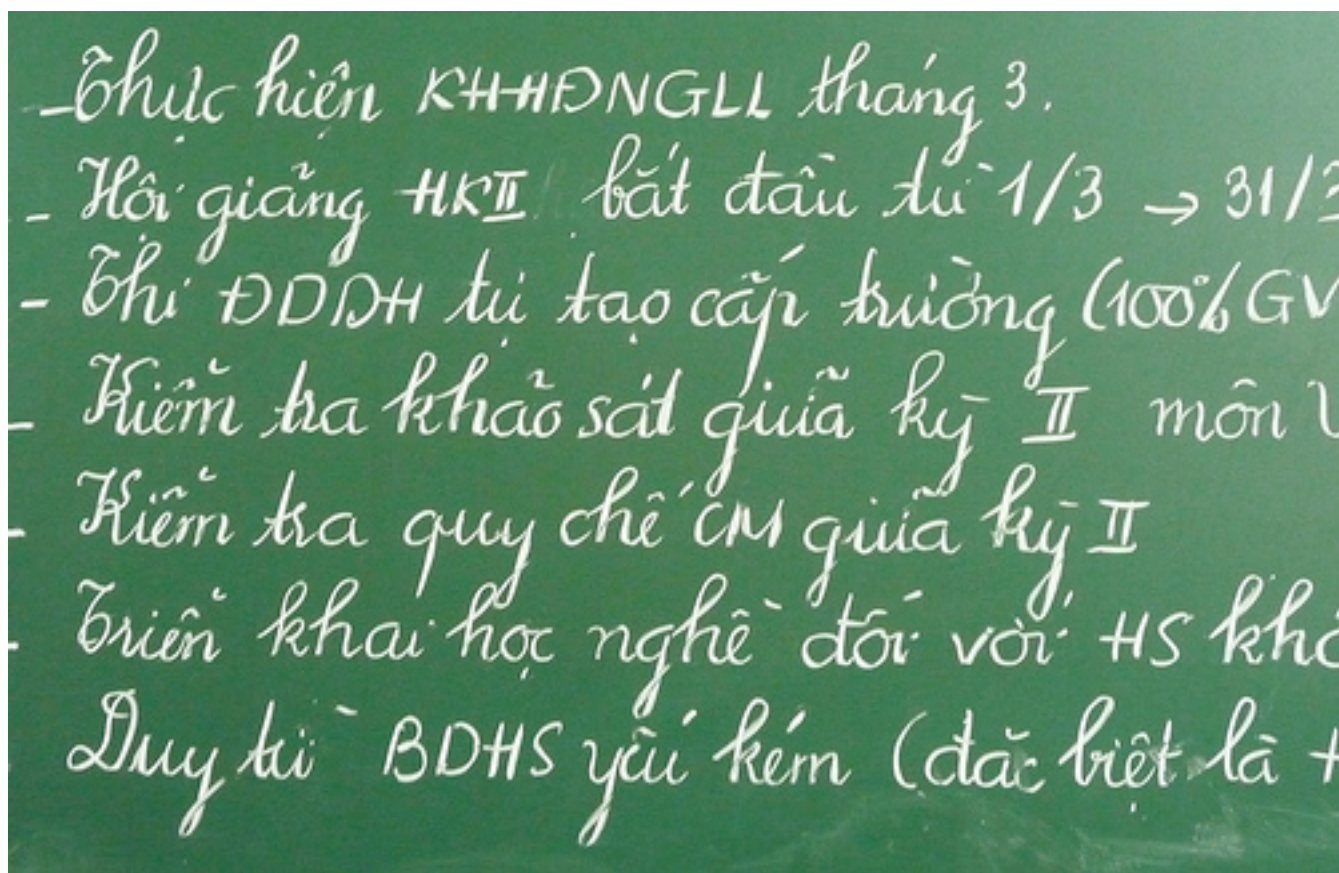 - Thực hiện KHHĐNGLL tháng 3.
- Hội giảng HKII bắt đầu từ 1/3 → 31/3
- Thi ĐDDH tự tạo cấp trường (100% GV
- Kiểm tra khảo sát giữa kỳ II môn
- Kiểm tra quy chế CM giữa kỳ II
- Triển khai học nghề đối với HS
Duy trì BDHS yếu kém (đặc biệt là